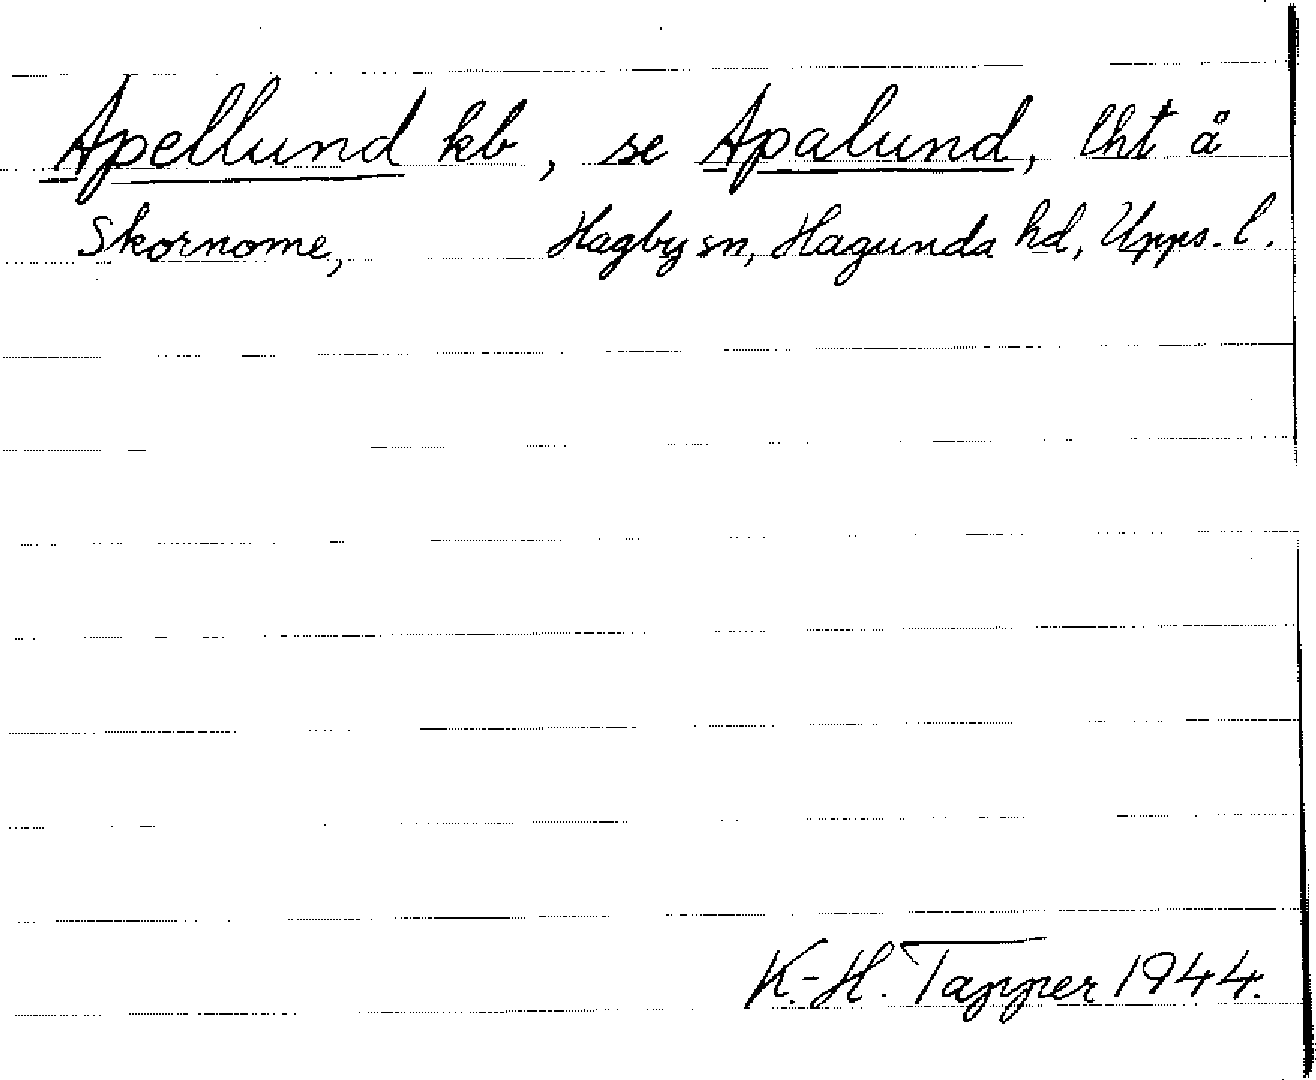 Apellund kb, se Apalund, lht å
Skornome, Hagby sn, Hagunda hd, Upps. l.
K.-H. Tapper 1944.